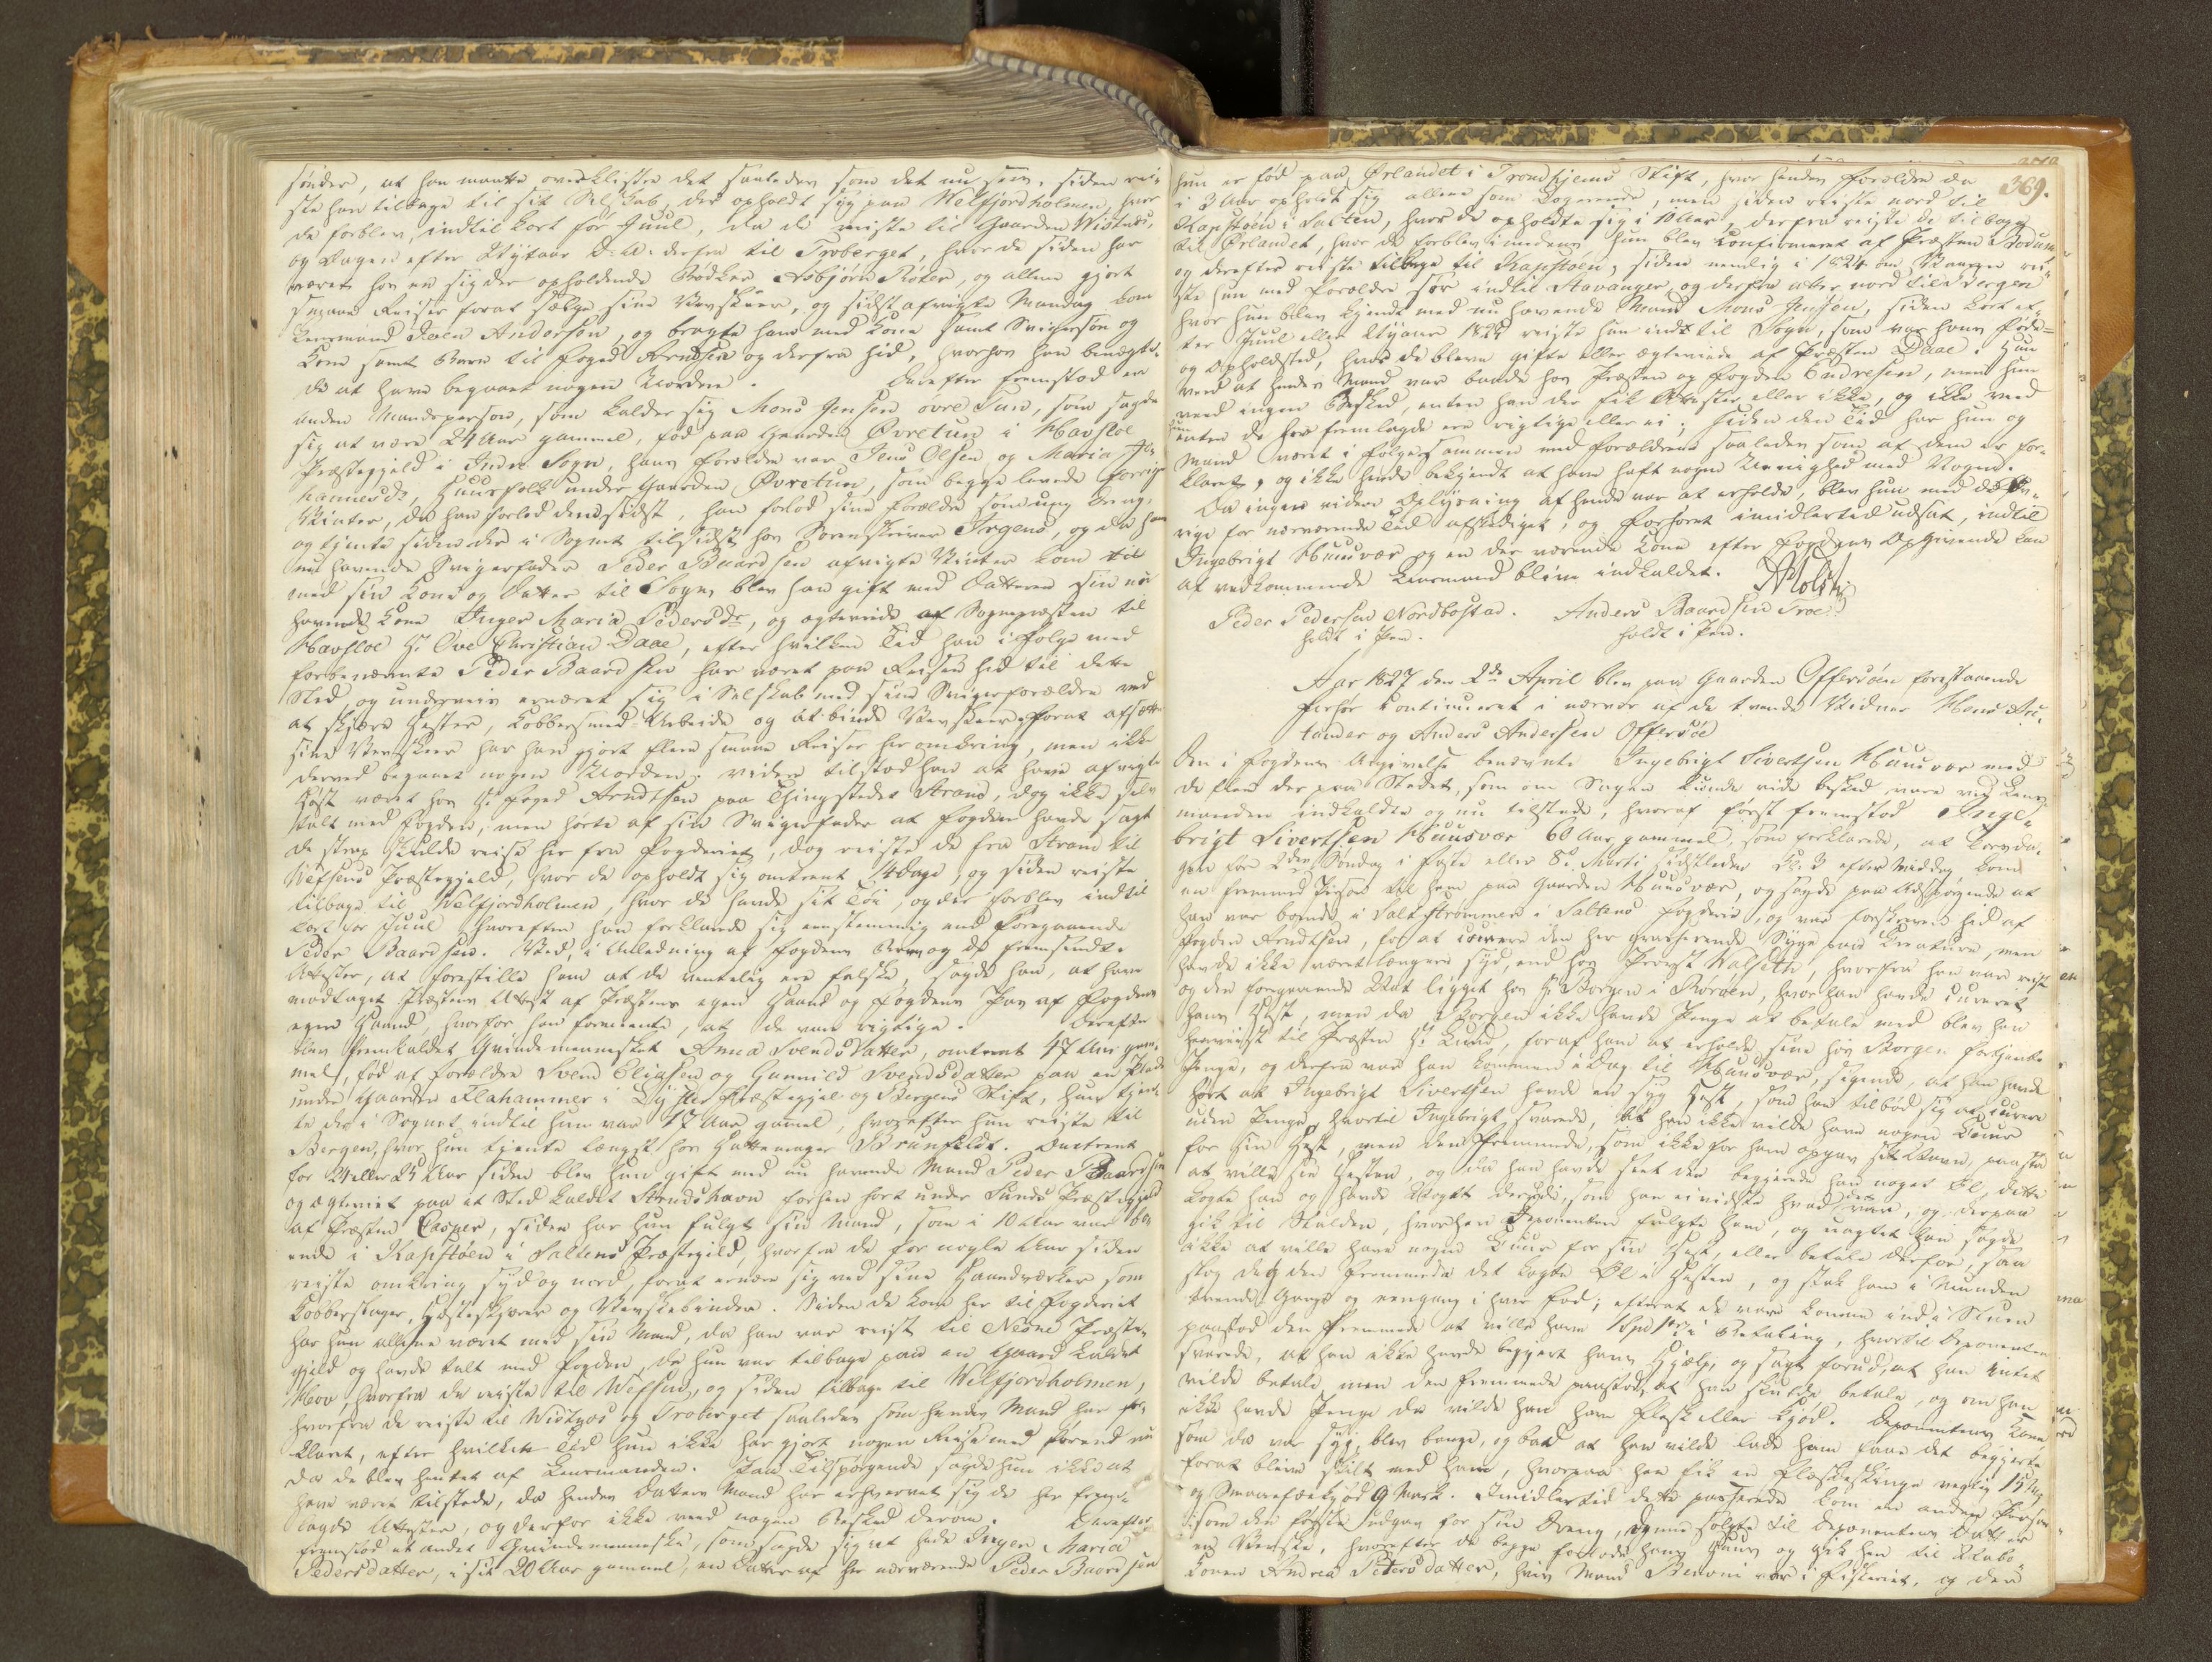 sönder, at han maatte overklistre det saaledes som det nu sees. siden rei-
ste han tilbage til sit Selskab, der opholdt sig paa Welfjordholmen, hvor
de forblev, indtil kort før Juul, da de reiste til Gaarden Wistnæs,
og Dagen efter Nytaar d: A: derfra til Troberget, hvor de siden har
været hos en sig der opholdende Bødker Asbjörn Røten, og allene gjort
smaae Reiser forat sælge sine Væv Skeer, og sidst afvigte Mandag kom
Lensmand Andersen, og bragte ham med Kone samt Svigersøn og
Kone samt Børn til Foged Arndtsen og derfra hid, hvorhos han benægte-
de at have begaaet nogen Uorden. Derefter fremstod en
anden Mandsperson, som kalder sig Mons Jensen övre Tun, som sagde
sig at være 24 Aar gammel, fød paa Gaarden Øvretun i Havsloe
Præstegjeld i Indre Sogn, hans Forældre var Jens Olsen og Maria Jo-
hannesdr, Huusfolk under Gaarden Øvretun, som begge levede forrige
Vinter, da han forlod dem sidst, han forlod sine Forældre som ung Dreng,
og tjente siden der i Sognet tilsidst hos Sorenskriver Irgens, og da hans
nu havende Svigerfader Peder Baardsen afvigte Vinter kom til
med sin Kone og Datter til Sogn, blev han gift med Datteren sin nu
havende Kone Inger Maria Pedersdr, og ægteviede af Sognepræsten til
Havsloe Hr Ove Christian Daae, efter hvilken Tid han i Følge med
forbenævnte Peder Baardsen har været paa Reisen hid til dette
Sted og underveis ernæret sig i Selskab med sine Svigerforældre ved
at skjære Heste, Kobbersmed-Arbeide og at binde Vævskeer. forat afsætte
sine Vævskeer har han gjort flere smaae Reiser her omkring, men ikke
derved begaaet nogen Uorden; viden tilstod han at have afvigte
Høst været hos Hr Foged Arndtsen paa Thingstedet Strand, dog ikke selv
talt med Fogden, men hørte af sin Svigerfader at Fogden havde sagt
de strax skulde reise her fra Fogderiet, dog reiste de fra Strand til
Vefsens Præstegjeld, hvor de opholdt sig omtrent 14 Dage, og siden reiste
tilbage til Welfjordholmen, hvor de havde sit Tøi, og der forblev indtil
kort før Juul hvorefter han forklarede sig eenstemmig med Foregaaende
Peder Baardsen. Ved, i Anledning af Fogdens Brev og de fremsendte
Attester, at forestille ham at de ventelig ere falske, sagde han, at have
modtaget Præstens Attest af Præstens egen Haand og Fogdens Pas af Fogdens
egen Haand, hvorfor han formeente, at de vare rigtige. Derefter
blev fremkaldet Qvindemennesket Anna Svendsdatter, omtrent 47 Aar gam-
mel, fød af Forældre Svend Eliasen og Gunnild Svendsdatter paa en Plads
under Gaarden Flahammer i Lyster Præstegjel og Bergens Stift, hun tjen-
te der i Sognet indtil hun var 17 Aar gamel, hvorefter hun reiste til
Bergen, hvor hun tjente længst hos Hattemager Brunfeldt. Omtrent
for 24 eller 25 Aar siden blev hun gift med nu havende Mand Peder Baardsen
og ægteviet paa et Sted kaldet Arndshavn forhen hørt under Sunds Præstegjeld
af Præsten Casper, siden har hun fulgt sin Mand, som i 10 Aar var bo-
ende i Kapstøen i Saltens Præstegild, hvorfra de for nogle Aar siden
reiste omkring syd og nord, forat ernære sig ved sine Haandværker som
Kobberslager, Hesteskjærer og Vævskebinder. Siden de kom her til Fogderiet
har hun allene været med sin Mand, da han var reist til Nesne Præste-
gjeld og havde talt med Fogden, da hun var tilbage paa en Gaard kaldet
Moe, hvorfra de reiste til Wefsen, og siden tilbage til Welfjordholmen,
hvorfra de reiste til Wistnæs og Troberget saaledes som hendes Mand har for-
klaret, efter hvilken Tid hun ikke har gjort nogen Reise med førend nu
da de blev hentet af Lensmanden. Paa Tilspørgende sagde hun ikke at
have været tilstede, da hendes Datters Mand har erhvervet sig de her frem-
lagde Attester, og derfor ikke veed nogen Besked derom. Derefter
fremstod et andet Qvindemenneske, som sagde sig at hede Inger Maria
Pedersdatter, i sit 20 Aar gammel, en Datter af her nærværende Peder Baardsen
369.
hun er fød paa Ørlandet i Trondhjems Stift, hvor hendes Forældre da
i 3 Aar opholdt sig allene som Logerende, men siden reiste nord til
Kapstøen i Salten, hvor de opholdte sig i 10 Aar, derfra reiste de tilbage
til Ørlandet, hvor de forblev imedens hun blev Confirmeret af Præsten Bodum,
og derefter reiste tilbage til Kapstøen, siden nemlig i 1824 om Vaaren rei-
ste hun med Forældre sør indtil Stavanger og derfra atter nord til Bergen
hvor hun blev kjendt med nu havende Mand Mons Jensen, siden kort ef-
ter Juul eller Nyaar 1825 reiste hun ind til Sogn, som var hans Føde-
og Opholdsted, hvor de bleve gifte eller ægteviede af Præsten Daae. Hun
veed at hendes Mand var baade hos Præsten og Fogden Endresen, men hun
veed ingen Besked, enten han der fik Attester eller ikke, og ikke veed
hun enten de her fremlagde ere rigtige eller ei; siden den Tid har hun og
Mand været i Følge sammen med Forældrene saaledes som af dem er for-
klaret, og ikke hende bekjendt at have haft nogen Uenighed med Nogen.
Da ingen videre Oplysning af hende var at erholde, blev hun med de Øv-
rige for nærværende Tid afskediget; og Forhøret imidlertid udsat, indtil
Ingebrigt Huusvær og en der værende Kone efter Fogdens Opgivende kan
af vedkommende Lensmand blive indkaldet. AHolst
Peder Pedersen Nordbostad. Anders Baardsen Troe
holdt i Pen. holdt i Pen.
Aar 1827 den 2de April blev paa Gaarden Offersøen forestaaende
Forhør Continueret i nærvær af de tvende Vidner Hans
og Anders Andersen Offersöe
Den i Fogdens Angivelse benævnte Ingebrigt Sivertsen Huusvær med
de flere der paa Stedet, som om Sagen kunde vide besked vare ved Lens-
manden indkaldte og nu tilstede, hvoraf først fremstod Inge-
brigt Sivertsen Huusvær 60 Aar gammel, som forklarede, at Torsda-
gen før 2den Søndag i Faste eller 8de Marti sidstleden Kl. 3 efter Middag, kom
en fremmed Person til ham paa Gaarden Huusvær, og sagde paa Adspørgende at
han var boende i Saltstrømmen i Saltens Fogderie, og var forskreven hid af
Fogden Arndtsen, for at Curere den her grasserende Syge paa Creature, men
havde ikke været længere syd, end hos Provst Walseth, hvorfra han var reist
og den foregaaende Nat ligget hos Hr Borgen i Rorøen, hvor han havde Cureret
hans Hest, men da Borgen ikke havde Penge at betale med blev han
henviist til Præsten Hr Lund, for af ham at erholde sine hos Borgen fortjente
Penge, og derfra var han kommen i Dag til Huusvær, sigende, at han havde
hørt at Ingebrigt Sivertsen havde en syg Hest, som han tilbød sig at Curere
uden Penge, hvortil Ingebrigt svarede, at han ikke vilde have nogen Cuur
for sin Hest, men den fremmede, som ikke for ham opgav sit Navn, paastod
at ville see Hesten, og da han havde seet den begjerede han noget Øl, dette
kogte han og havde Noget deriudi, som han ei vidste hvad var, og derpaa
gik til Stalden, hvorhen Deponenten fulgte ham, og uagtet han sagde
ikke at ville have nogen Cuur for sin Hest, eller betale derfor, saa
slog dog den fremmede det kogte Øl i Hesten, og stak ham i Munden
trende Gange og eengang i hver Fod; efterat de vare komne ind i Stuen
paastod den fremmede at ville have 1 Spd i Betaling, hvortil Deponenten
svarede, at han ikke havde begjert hans Hjælp, og sagt forud, at han intet
vilde betale, men den fremmede paastod, at han skulde betale, og om han
ikke havde Penge da vilde han have Flesk eller Kjød. Deponentens Kone
som da var syg, blev bange, og bad at han vilde lade ham faae det begjerte
forat blive skilt med ham, hvorpaa han fik en Fleskeskinge vegtig
og Smaaefækjød 9 Mark. Imidlertid dette passerede kom en anden Person
som den første udgav for sin Dreng, denne solgte til Deponentens Datter
en Vævske, hvorefter de begge forlode hans Huus og gik hen til Nabo-
Konen Andrea Petersdatter, hvis Mand Benoni var i Fiskeriet, og der